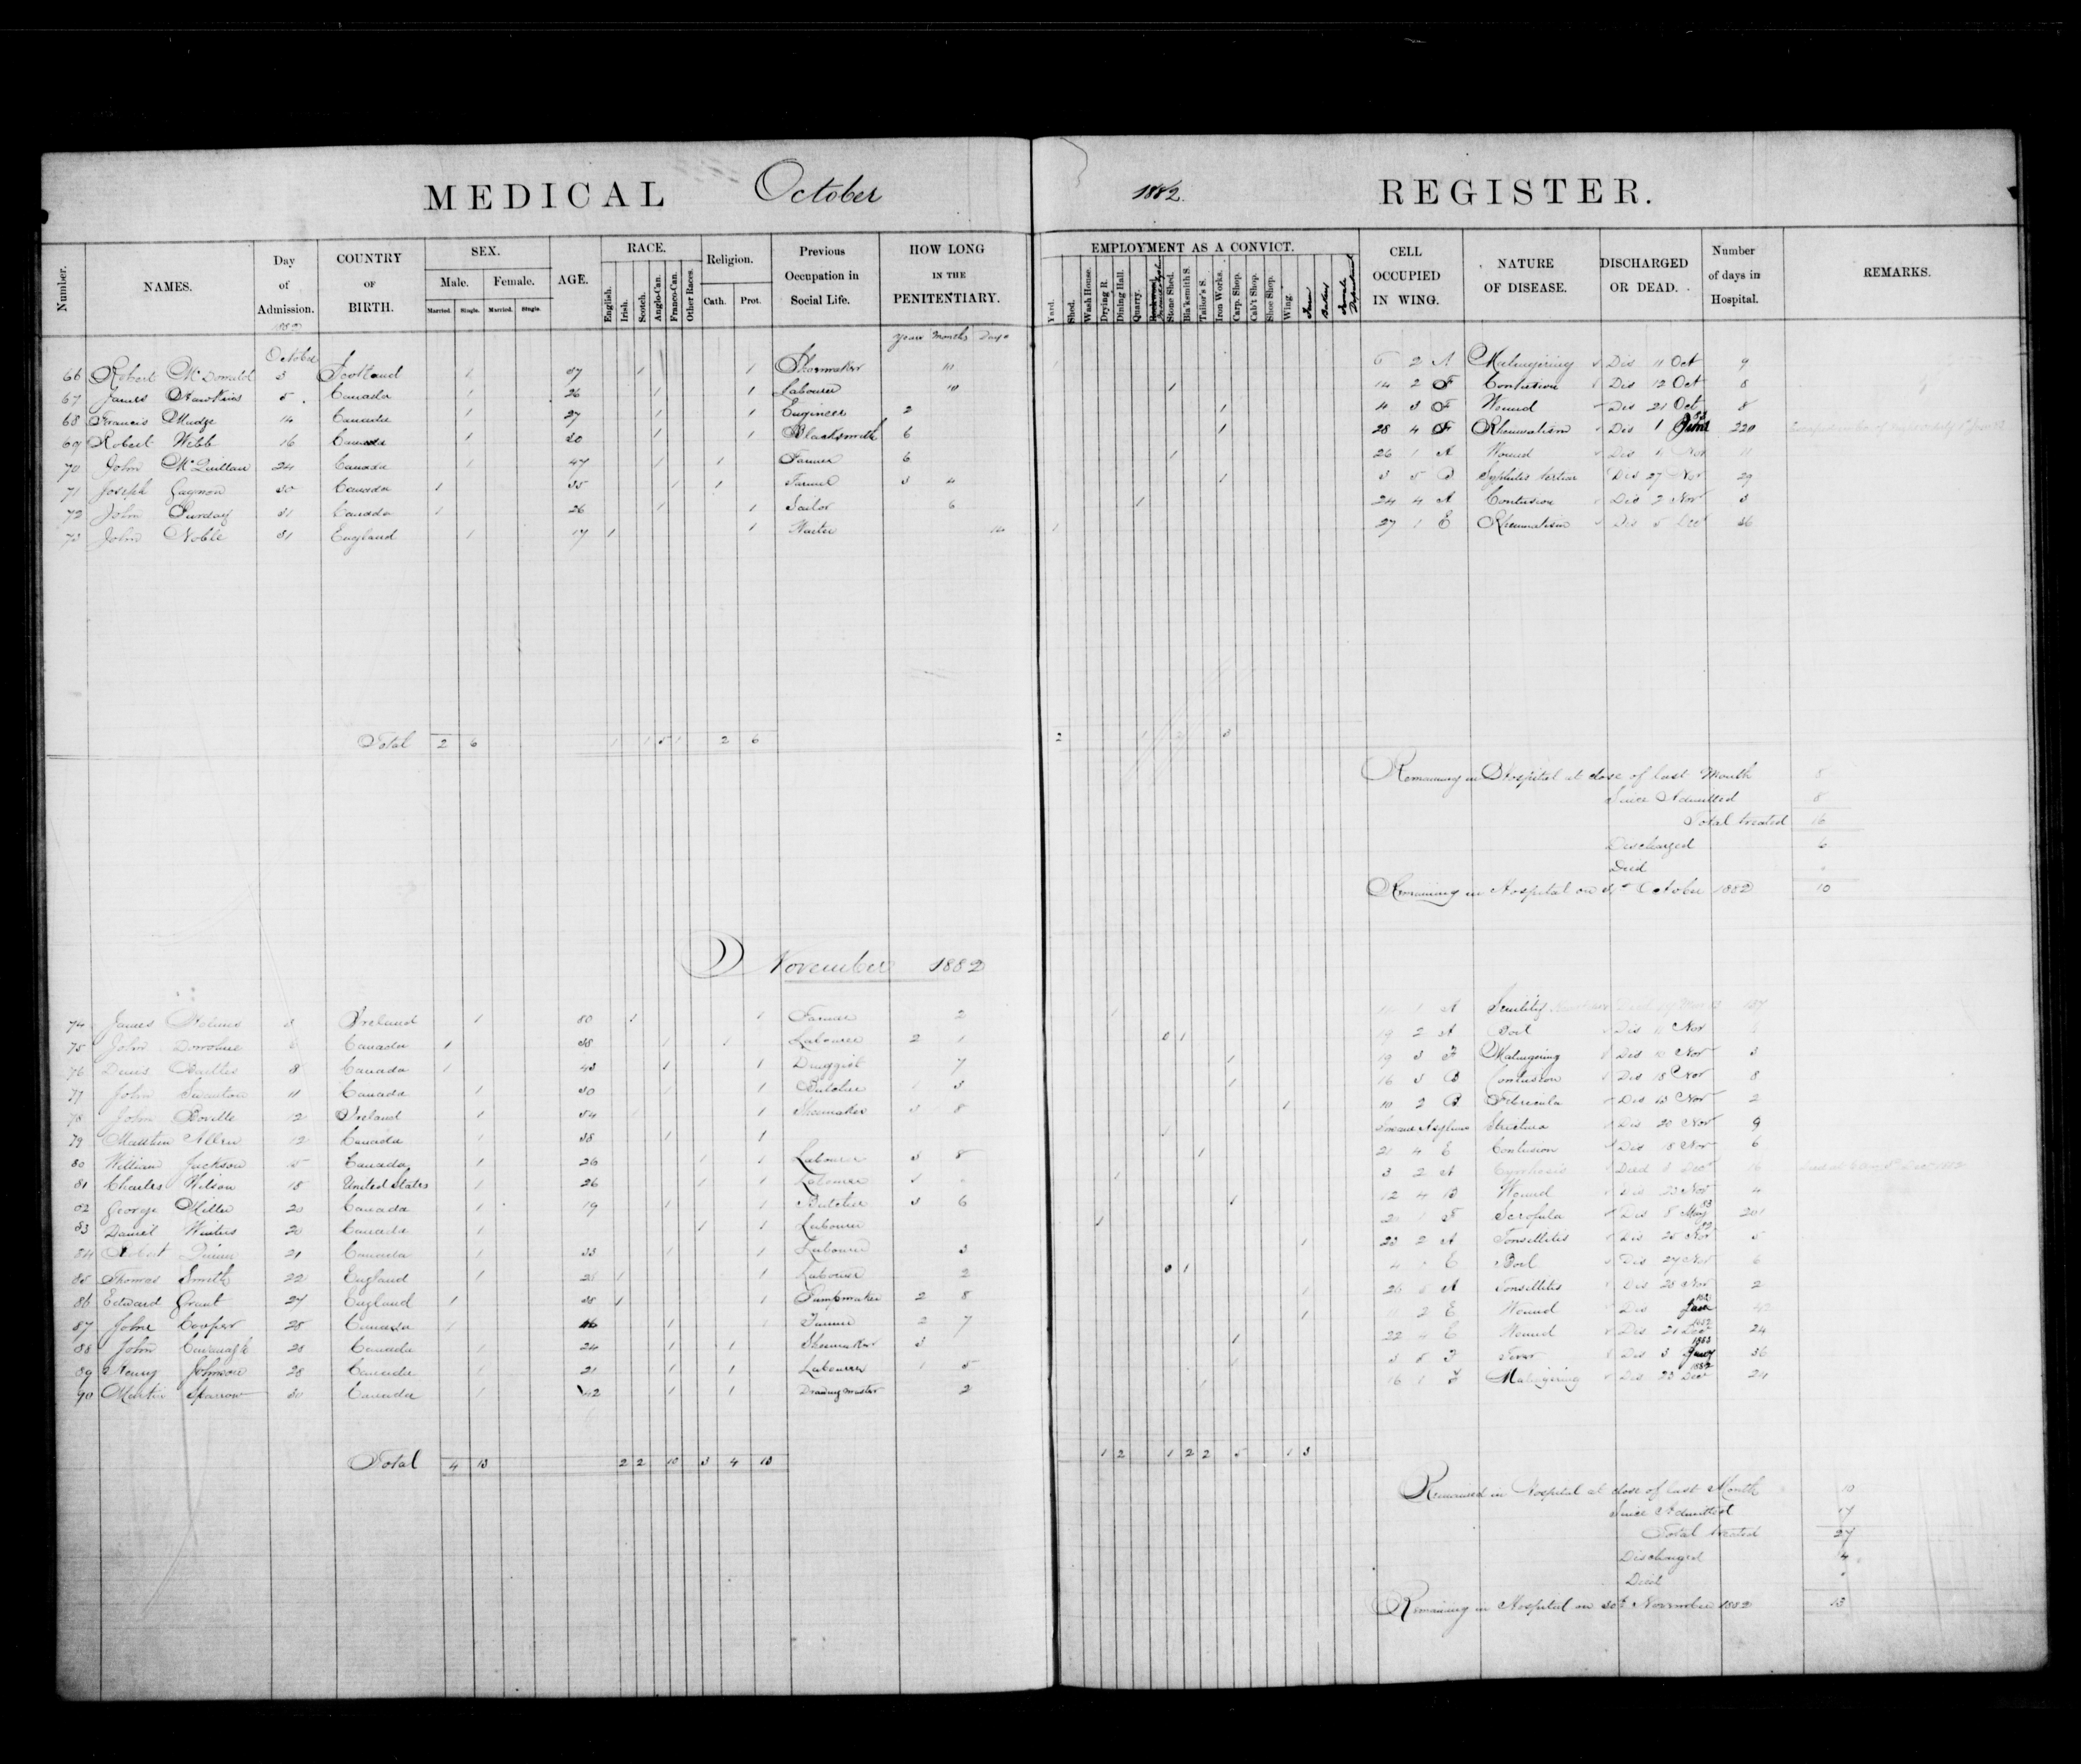 MEDICAL October 1882. REGISTER.
Number. NAMES. Day of Admission. COUNTRY OF BIRTH. SEX. Male. Female. Married. Single. Married. Single. AGE. RACE. English. Irish. Scotch. Anglo-Can. Franco-Can. Other Races. Religion. Cath. Prot. Previous Occupation in Social Life. HOW LONG IN THE PENITENTIARY. EMPLOYMENT AS A CONVICT. Yard. Shed. Wash House. Drying R. Dining Hall. Quarry. Stone Shed. Bla'ksmith S. Tailor's S. Iron Works. Carp. Shop. Cab't Shop. Shoe Shop. Wing. Farm Bakery Female Department CELL OCCUPIED IN WING. NATURE OF DISEASE. DISCHARGED OR DEAD. Number of days in Hospital. REMARKS.
1882 years Months Days
October
66 Robert McDonald 3 Scotland 1 37 1 1 Shoemaker 10 1 6 2 A Malingering Dis 11 Oct 9
67 James Hawkins 5 Canada 1 26 1 1 Labourer 10 1 14 2 F Contusion Dis 12 Oct 8
68 Francis Mudge 14 Canada 1 27 1 1 Engineer 2 1 11 3 F Wound Dis 21 Oct 8
69 Robert Webb 16 Canada 1 20 1 1 Blacksmith 6 1 28 4 F Rheumatism Dis 1 June 83 220
70 John McQuillan 24 Canada 1 47 1 1 Farmer 6 1 26 1 A Wound Dis Nov 11
71 Joseph Gagnon 30 Canada 1 35 1 1 Farmer 3 4 1 3 5 B Syphilis tertiar Dis 27 Nov 29
72 John Purday 31 Canada 1 26 1 1 Sailor 6 1 24 4 A Contusion Dis 2 Nov 3
73 John Noble 31 England 1 17 1 1 Waiter 14 1 27 1 E Rheumatism Dis 5 Dec 36
Total 2 6 1 1 5 1 2 6 2 1 2 3
Remaining in Hospital at close of last Month 8
Since Admitted 8
Total treated 16
Discharged 6
Died "
Remaining in Hospital on 31st October 1882 10
November 1882
74 James 3 Ireland 1 80 1 1 Farmer 2 1 1 A Senility 137
75 John Canada 1 38 1 1 Labourer 2 1 0 1 19 2 A Boil Dis Nov
76 Denis 8 Canada 1 43 1 1 Druggist 7 1 19 3 F Malingering Dis Nov 3
77 John Swanton 11 Canada 1 30 1 1 Butcher 1 3 1 16 3 B Contusion Dis 18 Nov 8
78 John Coville 12 Ireland 1 54 1 1 Shoemaker 3 8 1 10 2 B Febricula Dis 13 Nov 2
79 Matthew Allen 12 Canada 1 38 1 1 1 Insane Asylum Strictura Dis 20 Nov 9
80 William Jackson 15 Canada 1 26 1 1 Labourer 3 8 1 21 4 E Contusion Dis 18 Nov 6
81 Charles Wilson 18 United States 1 26 1 1 Labourer 1 3 2 A Died 8 Decr 16
82 George Miller 20 Canada 1 19 1 1 Butcher 3 6 1 12 4 B Wound Dis 23 Nov 4
83 Daniel Winters 20 Canada 1 1 1 Labourer 1 F Scrofula Dis 8 May 83 201
84 Robert Quinn 21 Canada 1 33 1 1 Labourer 3 1 23 2 A Tonsillitis Dis 25 Nov 82 5
85 Thomas Smith 22 England 1 1 1 Labourer 2 0 1 4 E Boil Dis 27 Nov 6
86 Edward Grant 27 England 1 38 1 1 Pumpmaker 2 8 1 26 A Tonsillitis Dis 28 Nov 2
87 John Cooper 28 Canada 1 46 1 1 Farmer 2 7 1 2 E Wound Dis 1883
88 John Cavanagh 28 Canada 1 24 1 1 Shoemaker 3 1 22 4 E Wound Dis 21 Dec 1882 24
89 Henry Johnson 28 Canada 1 21 1 1 Labourer 1 5 1 3 F Fever Dis 3 Jany 1883 36
90 Martin Sparrow 30 Canada 1 42 1 1 Drawing Master 2 1 16 1 F Malingering Dis 23 Dec 1882 24
Total 4 13 2 2 10 3 4 13 1 2 1 2 2 5 1 3
Remained in Hospital at close of last Month 10
Since Admitted 17
Total treated 27
Discharged
Died "
Remaining in Hospital on 30th November 1882 13